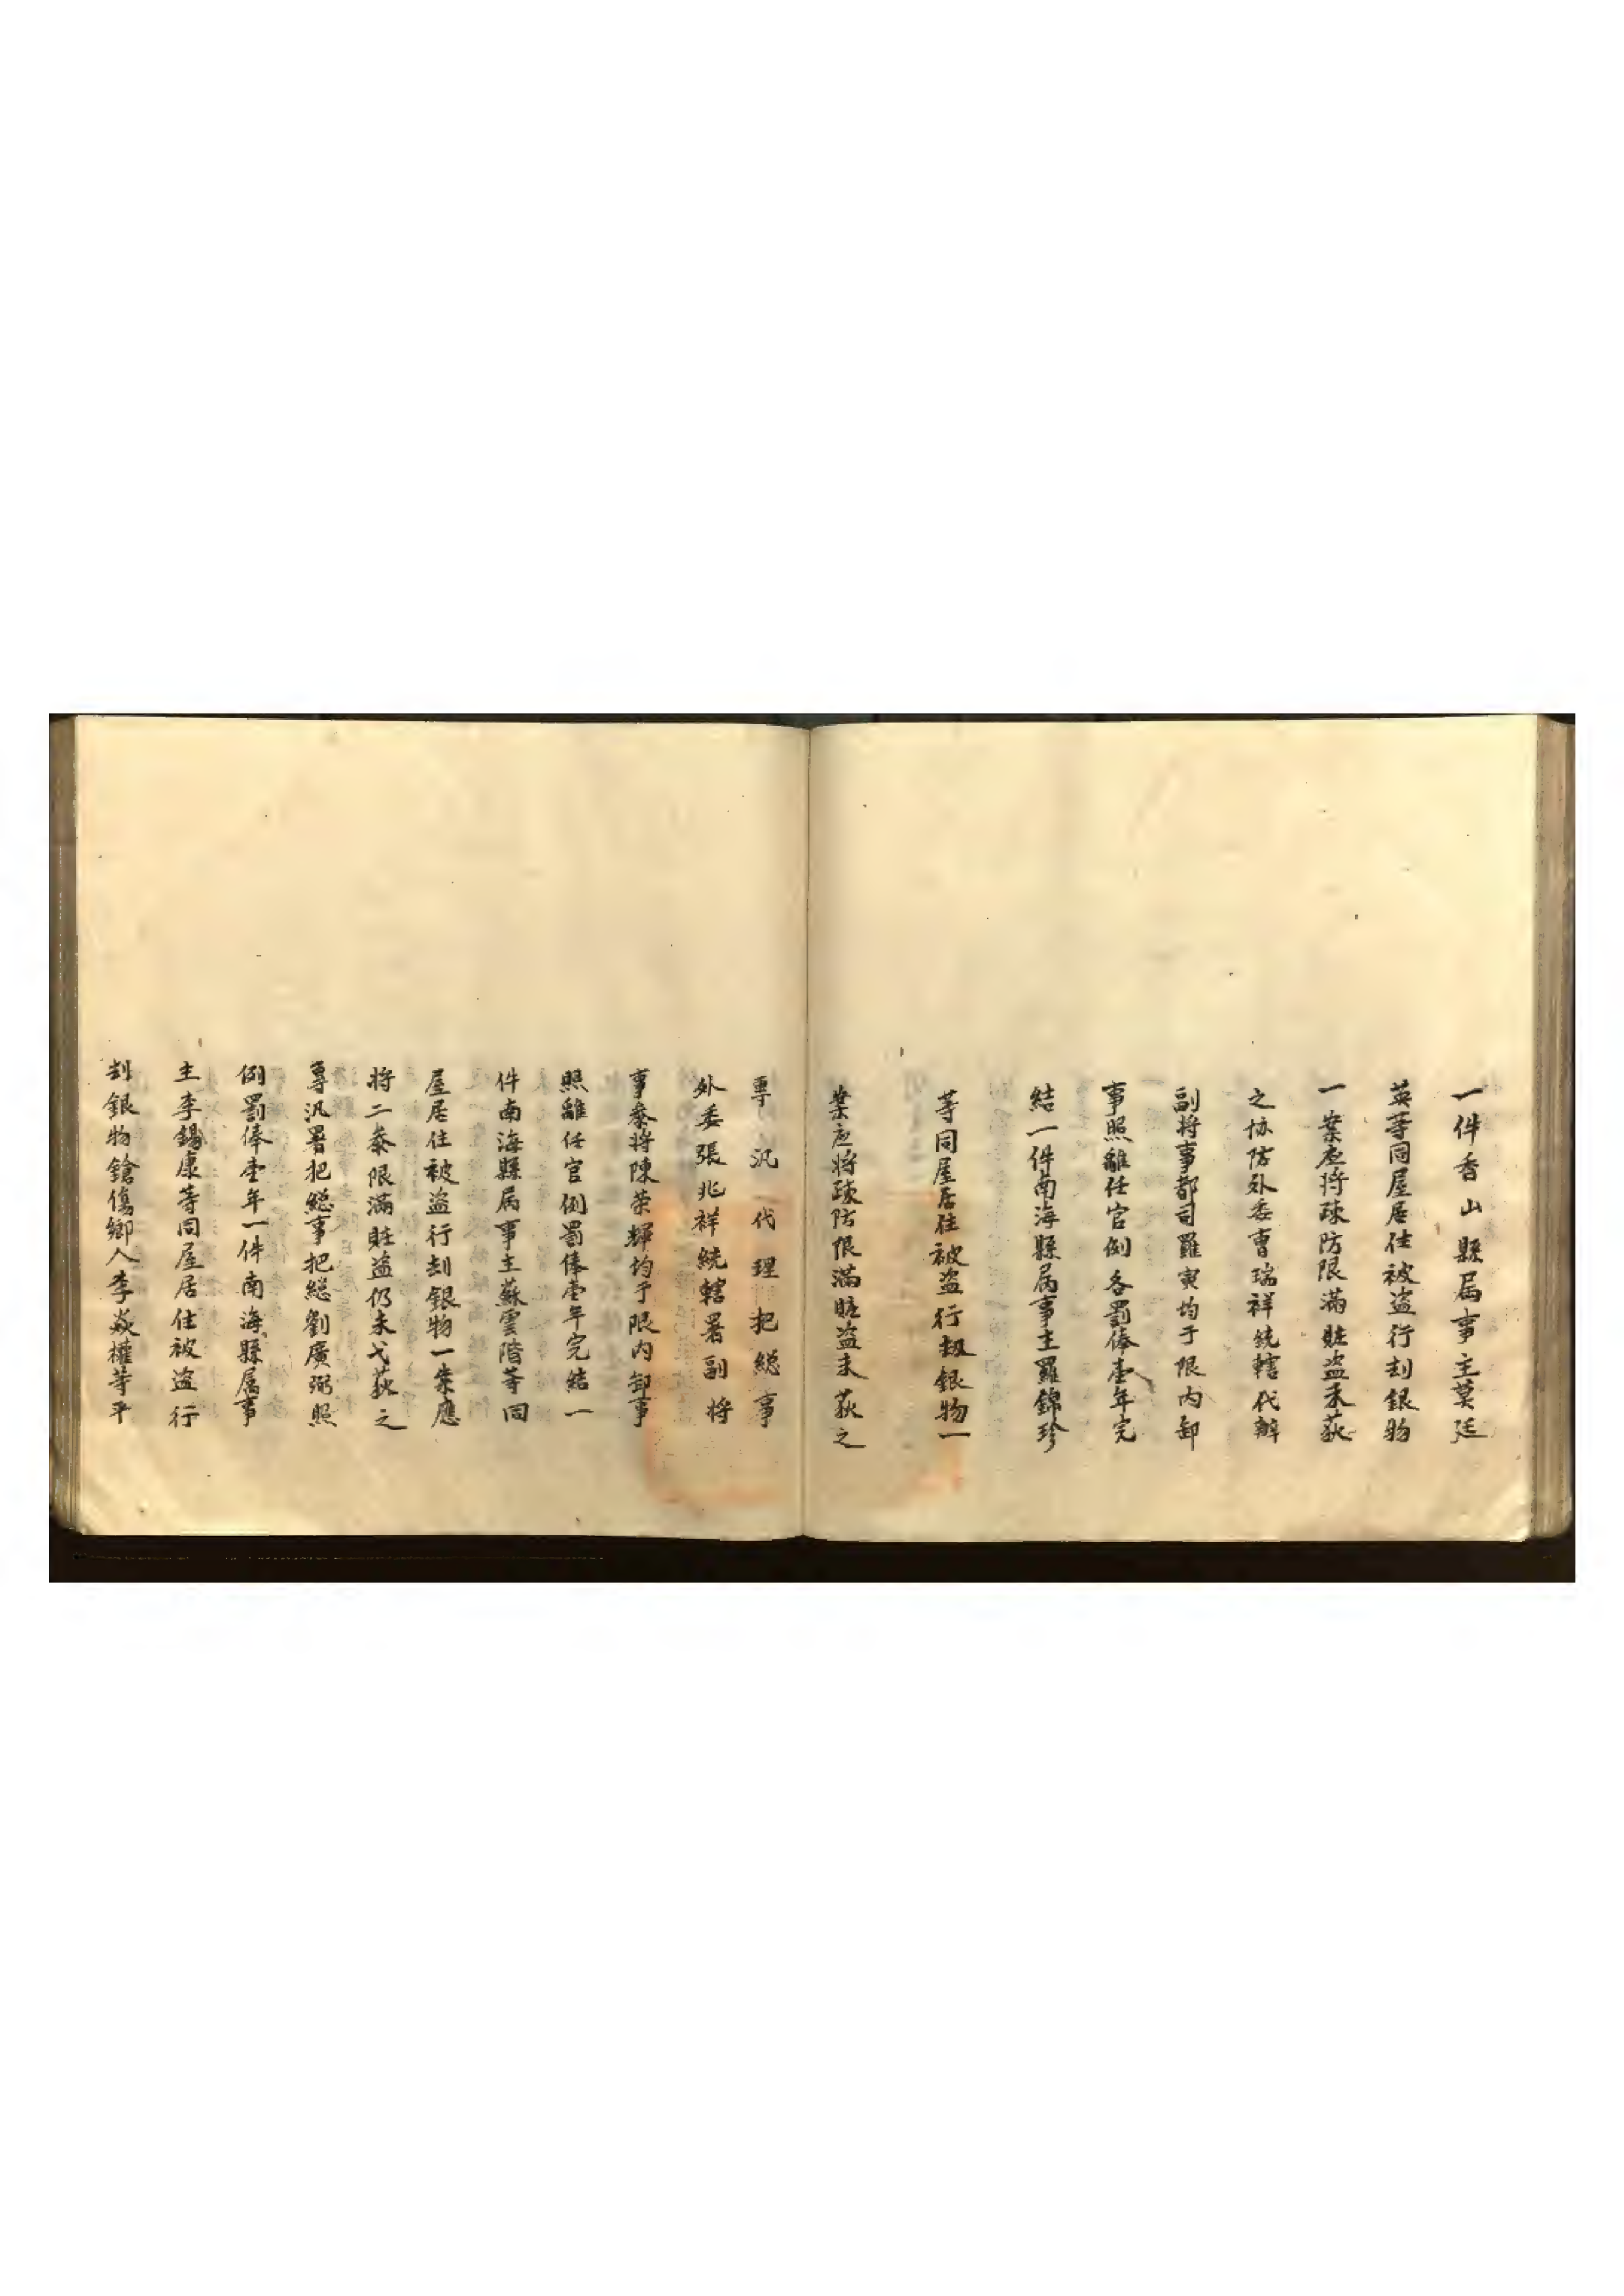 一件香山縣属事主莫廷
英等同屋居住被盗行刦銀物
一案应将疎防限滿賍盗未荻
之协防外委曹瑞祥统轄代辦
副将事都司羅寅均于限内卸
事照離任官例各罰俸壹年完
結一件南海縣属事主羅錦珍
等同屋居住被盗行刼銀物一
案应将疎防限滿賍盗未荻之
專汛代理把総事
外委張兆祥统轄署副将
事叅将陳荣輝均于限内卸事
照離任官例罰俸壹年完結一
件南海縣属事主蘇雲階等同
屋居住被盗行刦銀物一案應
将二叅限滿賍盗仍未弋荻之
專汛署把総事把総劉廣弼照
例罰俸壹年一件南海縣属事
主李錫康等同屋居住被盗行
刦銀物鎗傷鄉人李焱權等平